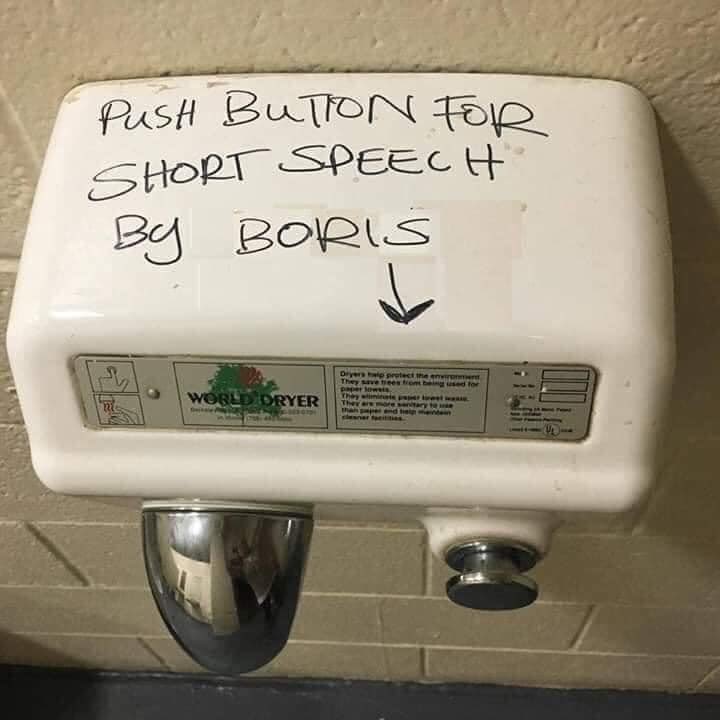 PUSH BUTTON FOR
SHORT SPEECH
By BORIS
WORLD DRYER
Dryers help protect the environment.
They save trees from being used for
paper towels.
They eliminate paper towel waste.
They are more sanitary to use
than paper and help maintain
cleaner facilities.
UL